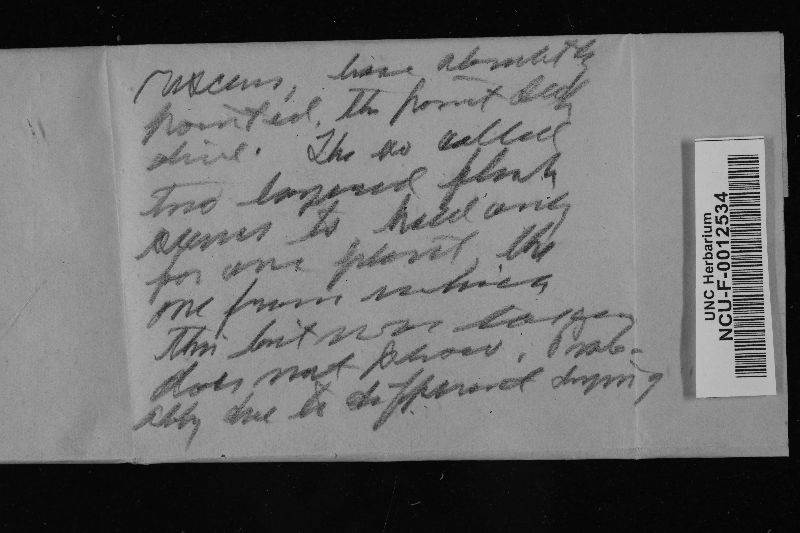 viscens, base absolutely
pointed, the point
olive. The so called
two layered flesh
seems to hold only
for one plant, the
one from which
this bit was taken
does not show. Prob-
ably due to different drying
UNC Herbarium
NCU-F-0012534